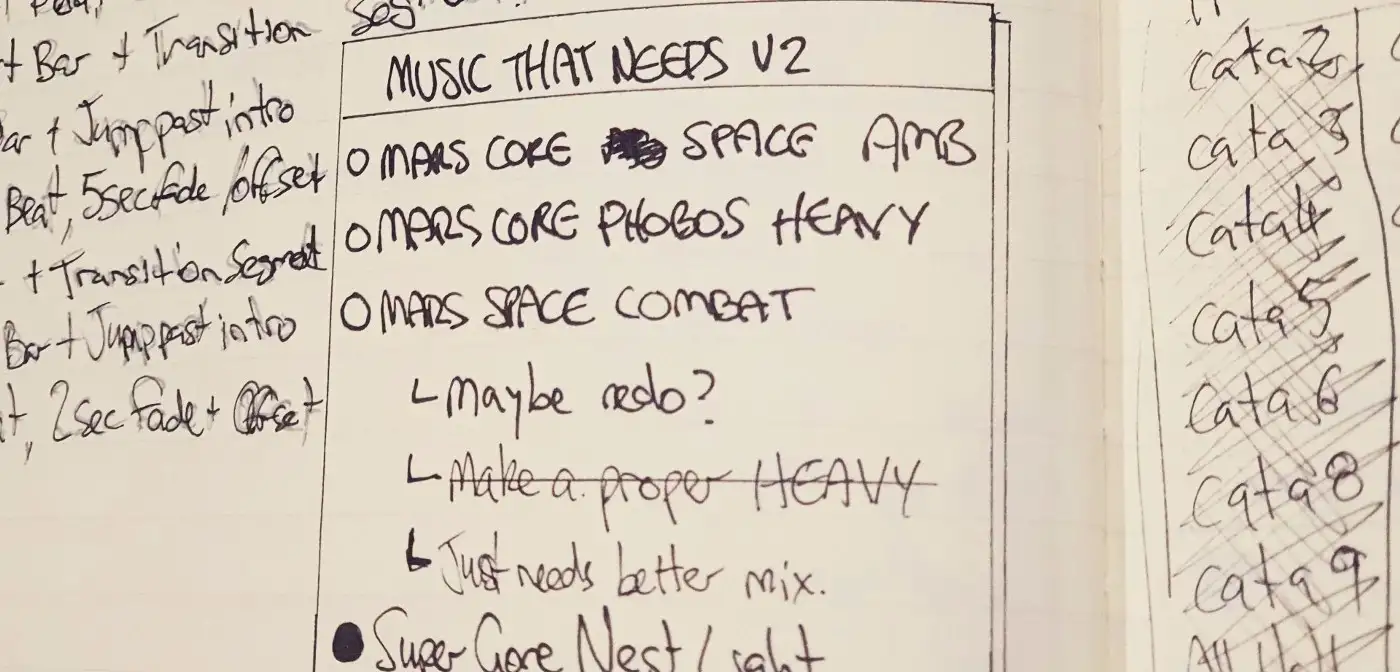 + Bar + Transition
Bar + Jump past intro
Beat, 5sec fade/offset
+ Transition Segment
Bar + Jump past intro
2sec fade + Offset
MUSIC THAT NEEDS V2
O MARS CORE SPACE AMB
O MARS CORE PHOBOS HEAVY
O MARS SPACE COMBAT
Maybe redo?
Make a proper HEAVY
Just needs better mix.
Super Gore Nest Light
cata 2
cata 3
cata 4
cata 5
cata 6
cata 8
cata 9